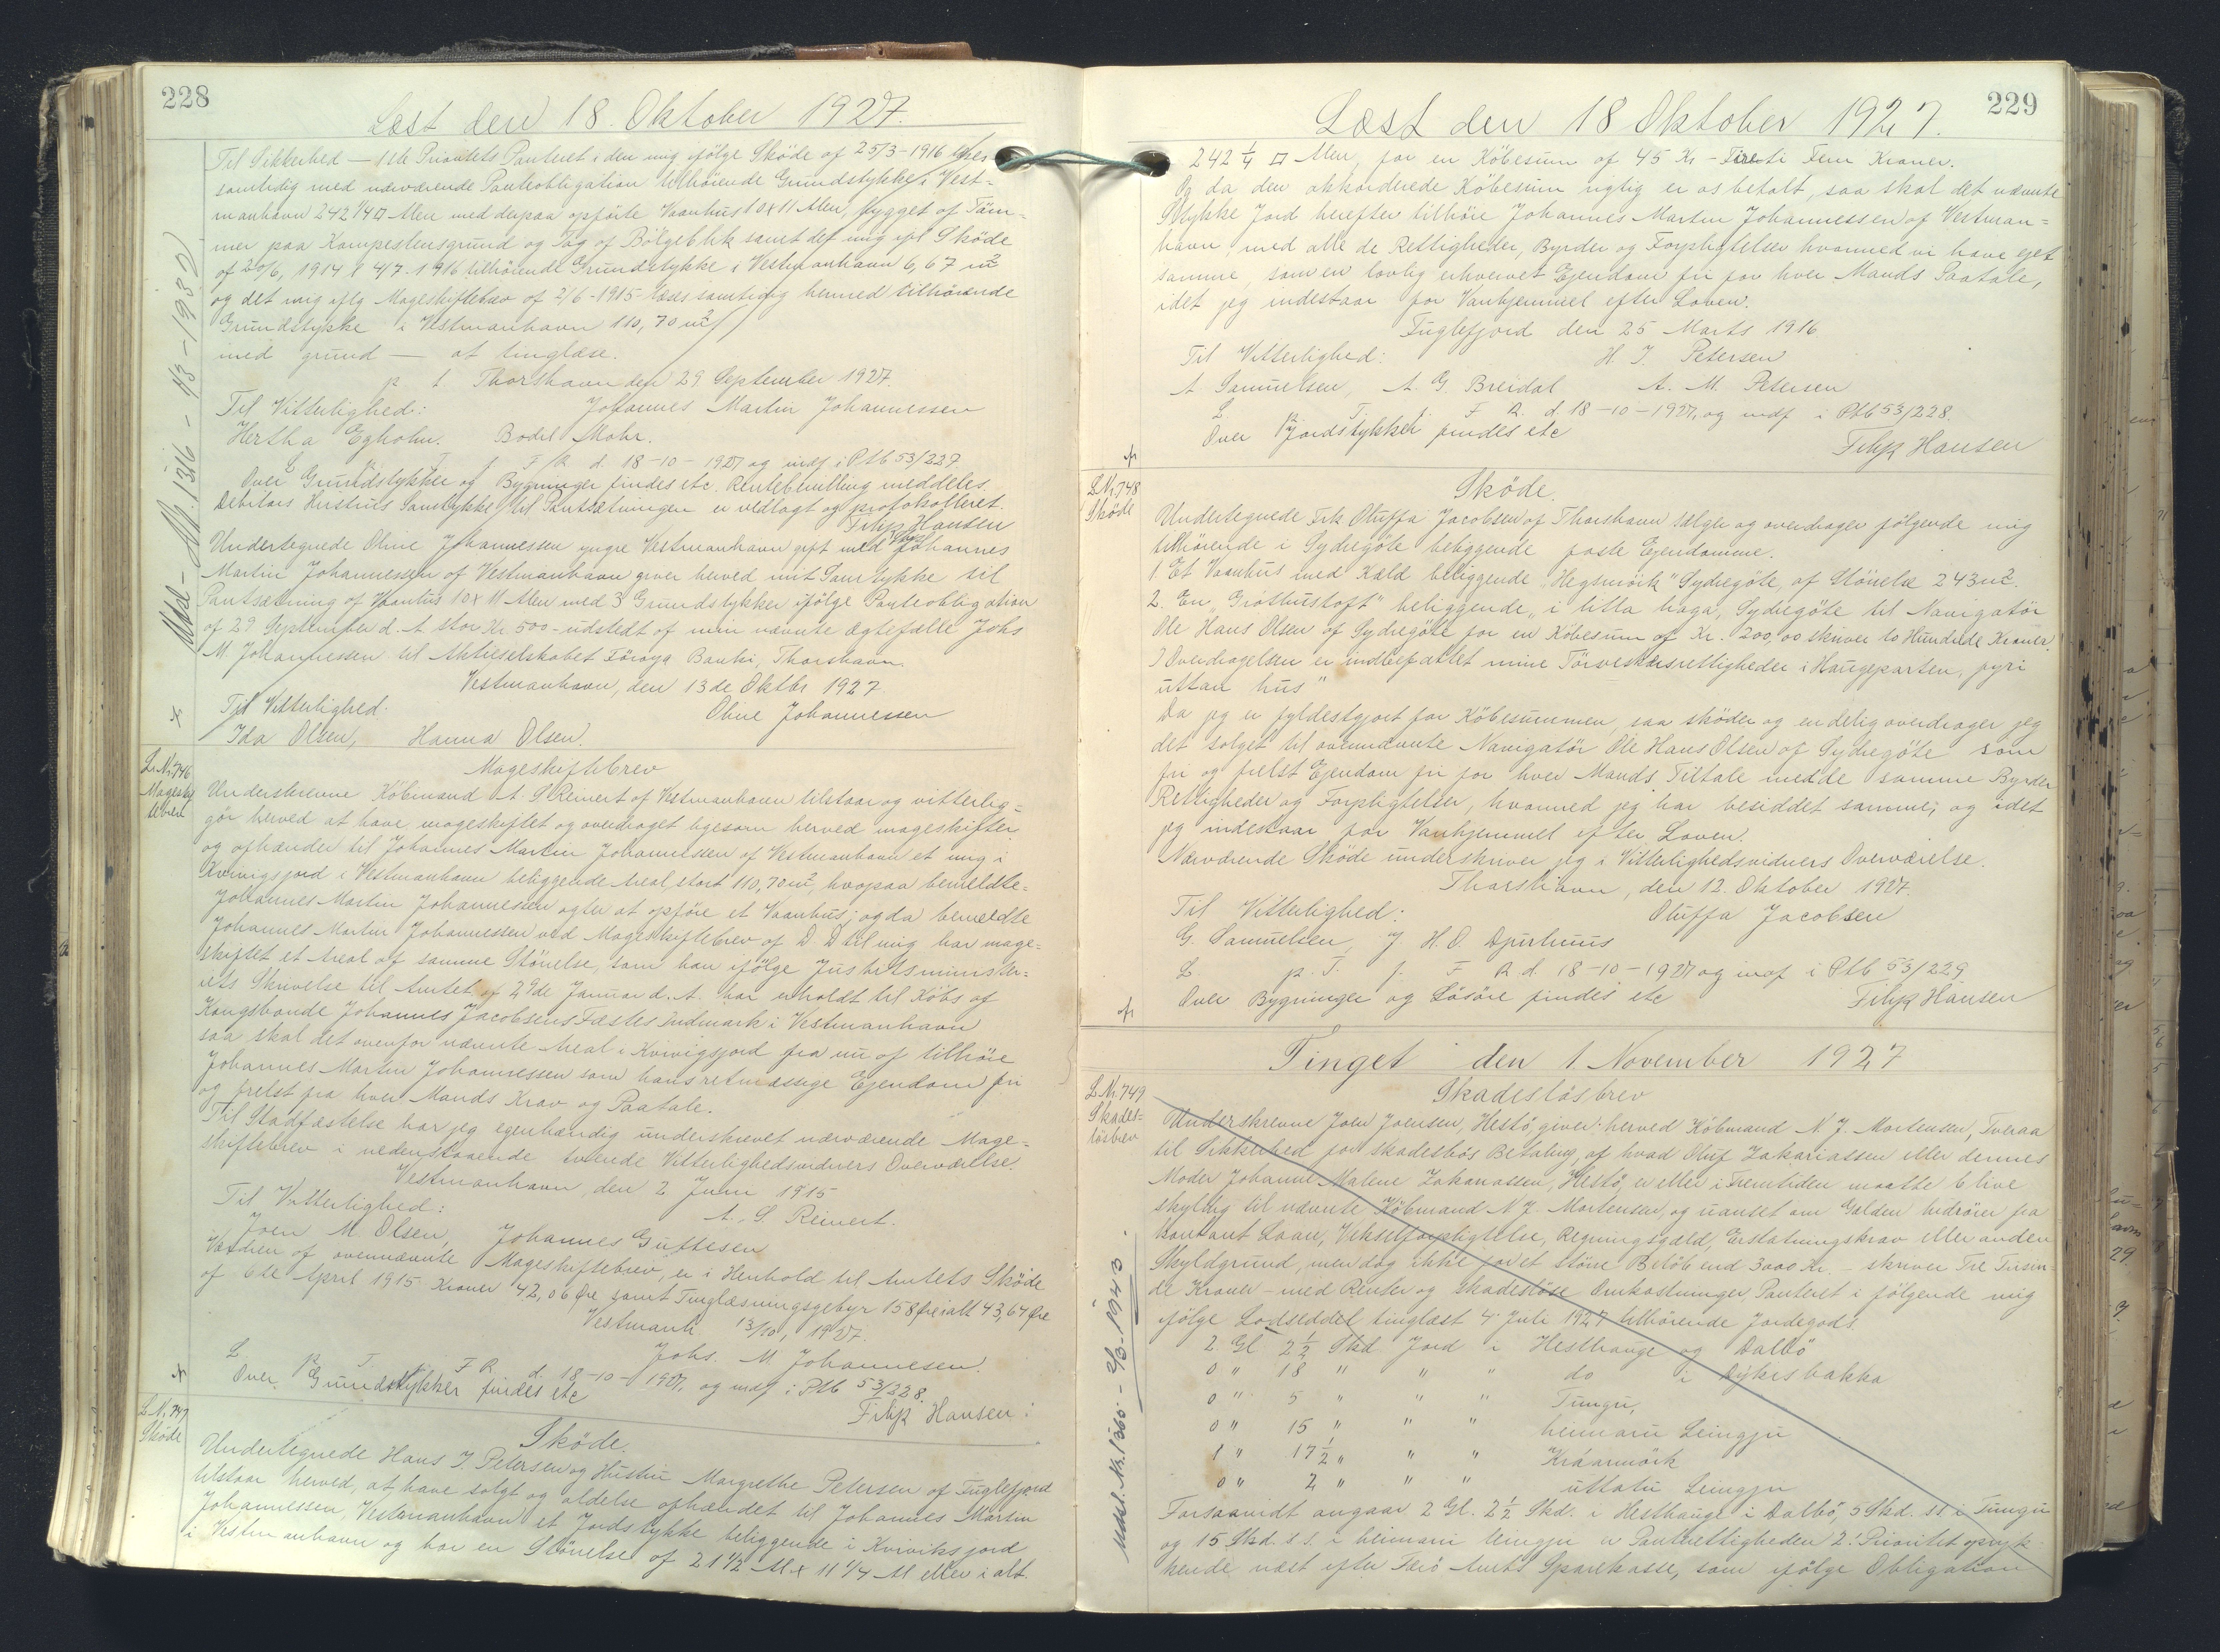 228
Læst den 18. Oktober 1927.
Til Sikkerhed — 1ste Prioritets Panteret i den mig ifölge Sköde af 25/3-1916 læses
samtidig med nærværende Panteobligation tilhörende Grundstykke i Vest-
manhavn 242 1/4 □ Alen med derpaa opförte Vaanhus 10 x 11 Alen, bygget af Töm-
mer paa Kampestensgrund og Tag af Bölgeblik samt det mig ifl Sköde
af 20/6, 1914 & 4/7-1916 tilhörende Grundstykke i Vestmanhavn 6,67 m2
og det mig iflg Mageskiftebrev af 2/6-1915 læses samtidig hermed tilhörende
Grundstykke i Vestmanhavn 110,70 m2
med grund — at tinglæse.
p t Thorshavn den 29 September 1927.
Til Vitterlighed: Johannes Martin Johannessen
Hertha Egholm. Bodil Mohr.
L. p. T. f. F R. d. 18-10-1927 og indf i Ptb 53/227
Over Grundstykker og Bygninger findes etc. Rentebevilling meddeles.
Debitors Hustrus Samtykke til Pantsætningen er vedlagt og protokolleret.
Filip Hansen
Undertegnede Oline Johannessen yngre Vestmanhavn gift med Johannes
Martin Johannessen af Vestmanhavn giver herved mit Samtykke til
Pantsætning af Vaanhus 10 x 11 Alen med 3 Grundstykker ifölge Panteobligation
af 29 September d. A. stor Kr 500 - udstedt af min nævnte Ægtefælle Johs
M. Johannessen til Aktieselskabet Föroya Banki, Thorshavn.
Vestmanhavn, den 13de Oktbr 1927.
Til Vitterlighed. Oline Johannessen
Ida Olsen, Hanna Olsen.
Udsl. 1316 - 1/3 - 193
L. Nr. 746
Magesk
tebrev
Mageskiftebrev
Underskrevne Köbmand A S Reinert af Vestmanhavn tilstaar og vitterlig-
gör herved at have mageskiftet og overdraget ligesom herved mageskifter
og afhænder til Johannes Martin Johannessen af Vestmanhavn et mig i
Kvivigsjord i Vestmanhavn beliggende Areal, stort 110,70 m2, hvorpaa bemeldte-
Johannes Martin Johannessen agter at opföre et Vaanhus; og da bemeldte
Johannes Martin Johannessen ved Mageskiftebrev af D. D til mig har mage-
skiftet et Areal af samme Störrelse, som han ifölge Justitsminister-
iets Skrivelse til Amtet af 29de Januar d. A. har erholdt til Köbs af
Kongsbonde Johannes Jacobsens Fæstes Indmark i Vestmanhavn
saa skal det ovenfor nævnte Areal i Kvivigsjord fra nu af tilhöre
Johannes Martin Johannessen som hans retmæssige Ejendom fri
og frelst fra hver Mands Krav og Paatale.
Til Stadfæstelse har jeg egenhændig underskrevet nærværende Mage-
skiftebrev i nedenstaaende tvende Vitterlighedsvidners Overværelse.
Vestmanhavn, den 2 Juni 1915
Til Vitterlighed: A. S. Reinert.
Joen M. Olsen, Johannes Guttesen
Værdien af ovennævnte Mageskiftebrev, er i Henhold til Amtets Sköde
af 6te April 1915 Kroner 42,06 Öre samt Tinglæsningsgebyr 158 Öre ialt 43,64 Öre
Vestmanh 13/10, 1927.
Johs. M Johannesen.
L. p. T. f. F R. d. 18-10-1927, og indf i Ptb 53/228.
Over Grundstykker findes etc
Filip Hansen
L. Nr. 747
Sköde
Sköde.
Undertegnede Hans J Petersen og Hustru Margrethe Petersen af Fuglefjord
tilstaar herved, at have solgt og aldeles afhændet til Johannes Martin
Johannessen, Vestmanhavn et Jordstykke beliggende i Kviviksjord
i Vestmanhavn og har en Störrelse af 21 1/2 Al x 11 1/4 Al eller i alt.
229
Læst den 18 Oktober 1927.
242 1/4 □ Alen, for en Köbesum af 45 Kr - Fireti Fem Kroner.
Og da den akkorderede Köbesum rigtig er os betalt, saa skal det nævnte
Stykke Jord herefter tilhöre Johannes Martin Johannessen af Vestman-
havn, med alle de Rettigheder, Byrder og Forpligtelser hvormed vi have ejet
samme, som en lovlig erhvervet Ejendom fri for hver Mands Paatale,
idet jeg indestaar for Vanhjemmel efter Loven.
Fuglefjord den 25 Marts 1916
Til Vitterlighed: H. J. Petersen
A Samuelsen, A. G. Breidal A. M. Petersen
L. p. T. f. F R. d. 18-10-1927, og indf i Ptb 53/228.
Over Jordstykket findes etc
Filip Hansen
L Nr. 748
Sköde
Sköde.
Undertegnede Frk Oluffa Jacobsen af Thorshavn sælger og overdrager fölgende mig
tilhörende i Sydregöte beliggende faste Ejendomme.
1. Et Vaanhus med Kæld beliggende "Hegsmörk" Sydregöte, af Störrelse 243 m2.
2. En "Gróthustoft" beliggende "i litla haga, Sydregöte til Navigatör
Ole Hans Olsen af Sydregöte for en Köbesum af Kr. 200,00 skriver to Hundrede Kroner.
I Overdragelsen er indbefattet mine Törveskærsrettigheder i Haugeparten, fyri
uttan hus"
Da jeg er fyldestgjort for Köbesummen, saa sköder og endelig overdrager jeg
det solgte til ovennævnte Navigatör Ole Hans Olsen af Sydregöte som
fri og frelst Ejendom fri for hver Mands Tiltale med de samme Byrder
Rettigheder og Forpligtelser, hvormed jeg har besiddet samme; og idet
jeg indestaar for Vanhjemmel efter Loven.
Nærværende Sköde underskriver jeg i Vitterlighedsvidners Overværelse.
Thorshavn, den 12. Oktober 1927.
Til Vitterlighed: Oluffa Jacobsen
G. Samuelsen, J. H. O. Djurhuus
L. p. T. f. F R. d. 18-10-1927 og indf i Ptb 53/229
Over Bygninger og Lösöre findes etc Filip Hansen
Tinget den 1. November 1927
L Nr. 749
Skades-
lösbrev
Skadeslösbrev
Underskrevne Joen Joensen, Hestö, giver herved Köbmand N. J. Mortensen, Tveraa
til Sikkerhed for skadeslös Betaling af hvad Oluf Zakariassen eller dennes
Moder Johanne Malene Zakariassen, Hestö, er eller i Fremtiden maatte blive
skyldig til nævnte Köbmand N J. Mortensen, og uanset om Gælden hidrörer fra
kontant Laan, Vekselforpligtelse, Regningsgæld, Erstatningskrav eller anden
Skyldgrund, men dog ikke for et större Belöb end 3000 Kr. - skriver Tre Tusin-
de Kroner - med Renter og skadeslöse Omkostninger, Panteret i fölgende mig
ifölge Lodseddel tinglæst 4 Juli 1927 tilhörende Jordegods.
2 Gl 2 1/2 Skd Jord i Hesthauge og Dalbö
0 " 18 " " " do i Dýkisbakka
0 " 5 " " " Tungu,
0 " 15 " " " heimaru Leingju
1 " 17 1/2 " " " Kráarmörk
0 " 2 " " " uttatu Leingju
Forsaavidt angaar 2 Gl. 2 1/2 Skd. i Hesthauge i Dalbö, 5 Skd. ss. i Tungu
og 15 Skd. s s. i heimari leingju er Panterettigheden 2. Prioritet opryk-
kende næst efter Færö Amts Sparekasse, som ifölge Obligation
Udsl. Nr. 1366 - 2/3-1943.